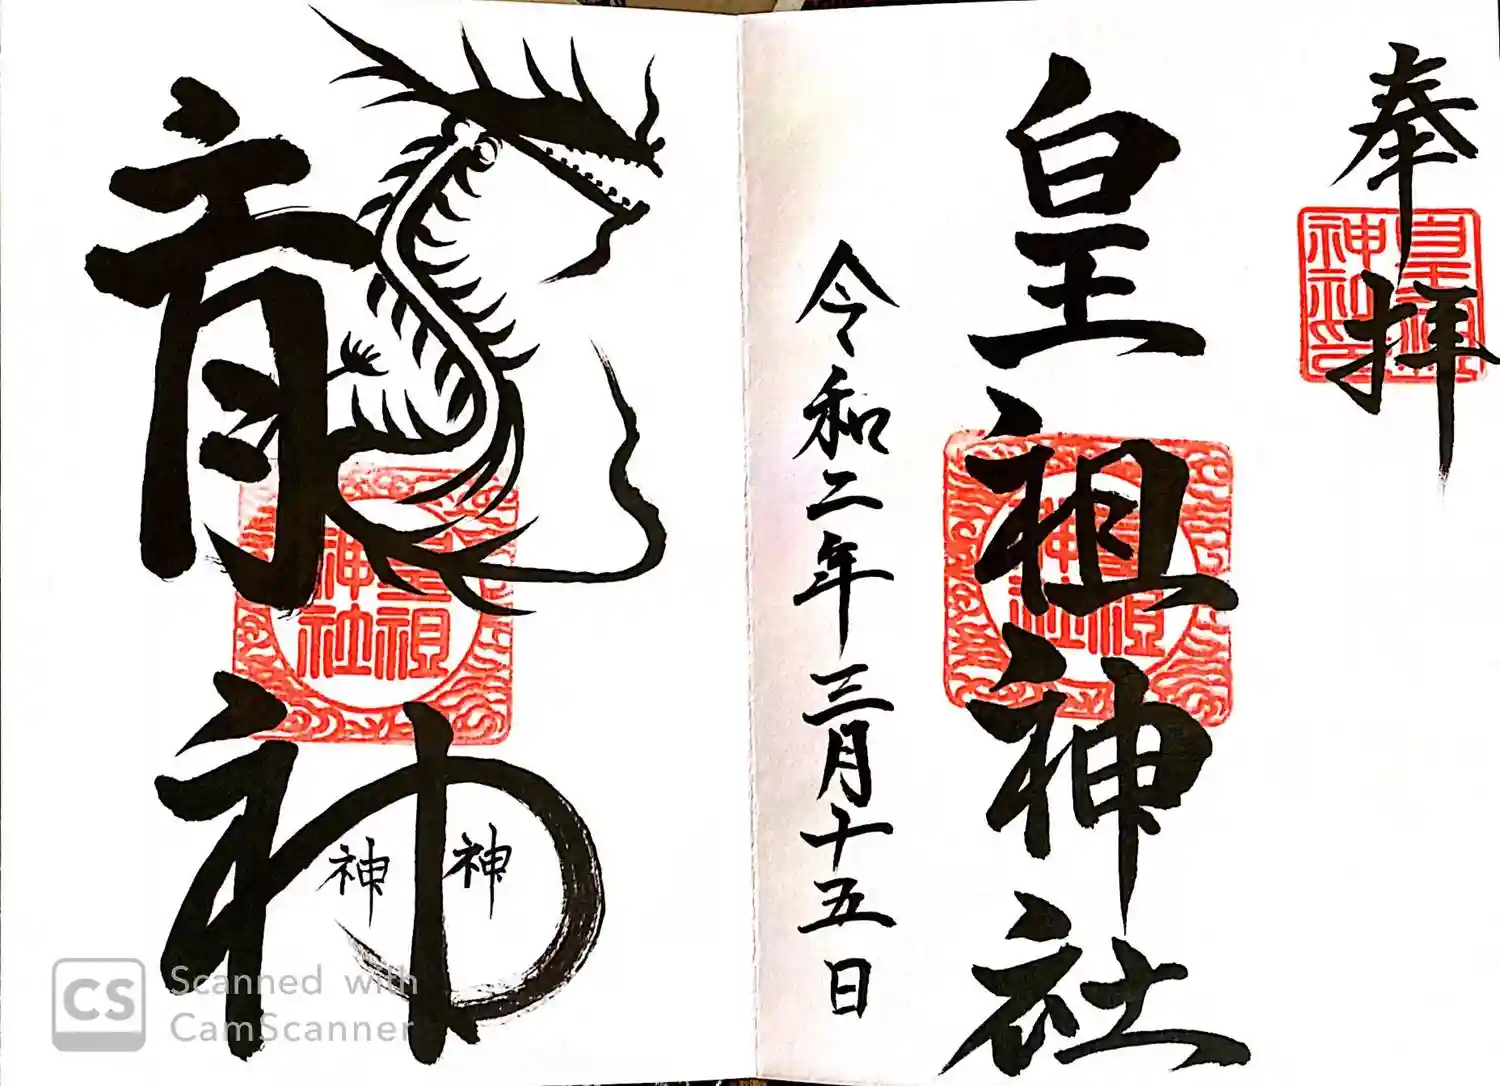 奉拝
皇祖神社
令和二年三月十五日
龍神
神 神
皇祖
神社
皇祖
神社
皇祖
神社印
CS Scanned with
CamScanner